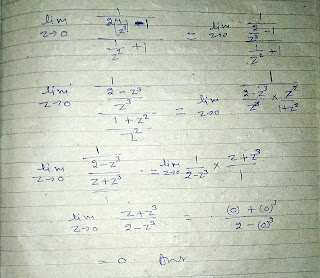 lim z→0 1/(2(1/z³) - 1)/(1/z² + 1) = lim z→0 1/(2/z³ - 1)/(1/z² + 1)
lim z→0 1/((2 - z³)/z³)/((1 + z²)/z²) = lim z→0 1/((2 - z³)/z³ × z²/(1+z²))
lim z→0 1/((2 - z³)/(z + z³)) = lim z→0 1/(2 - z³) × (z + z³)/1
lim z→0 (z + z³)/(2 - z³) = ((0) + (0)³)/(2 - (0)³)
= 0 Ans